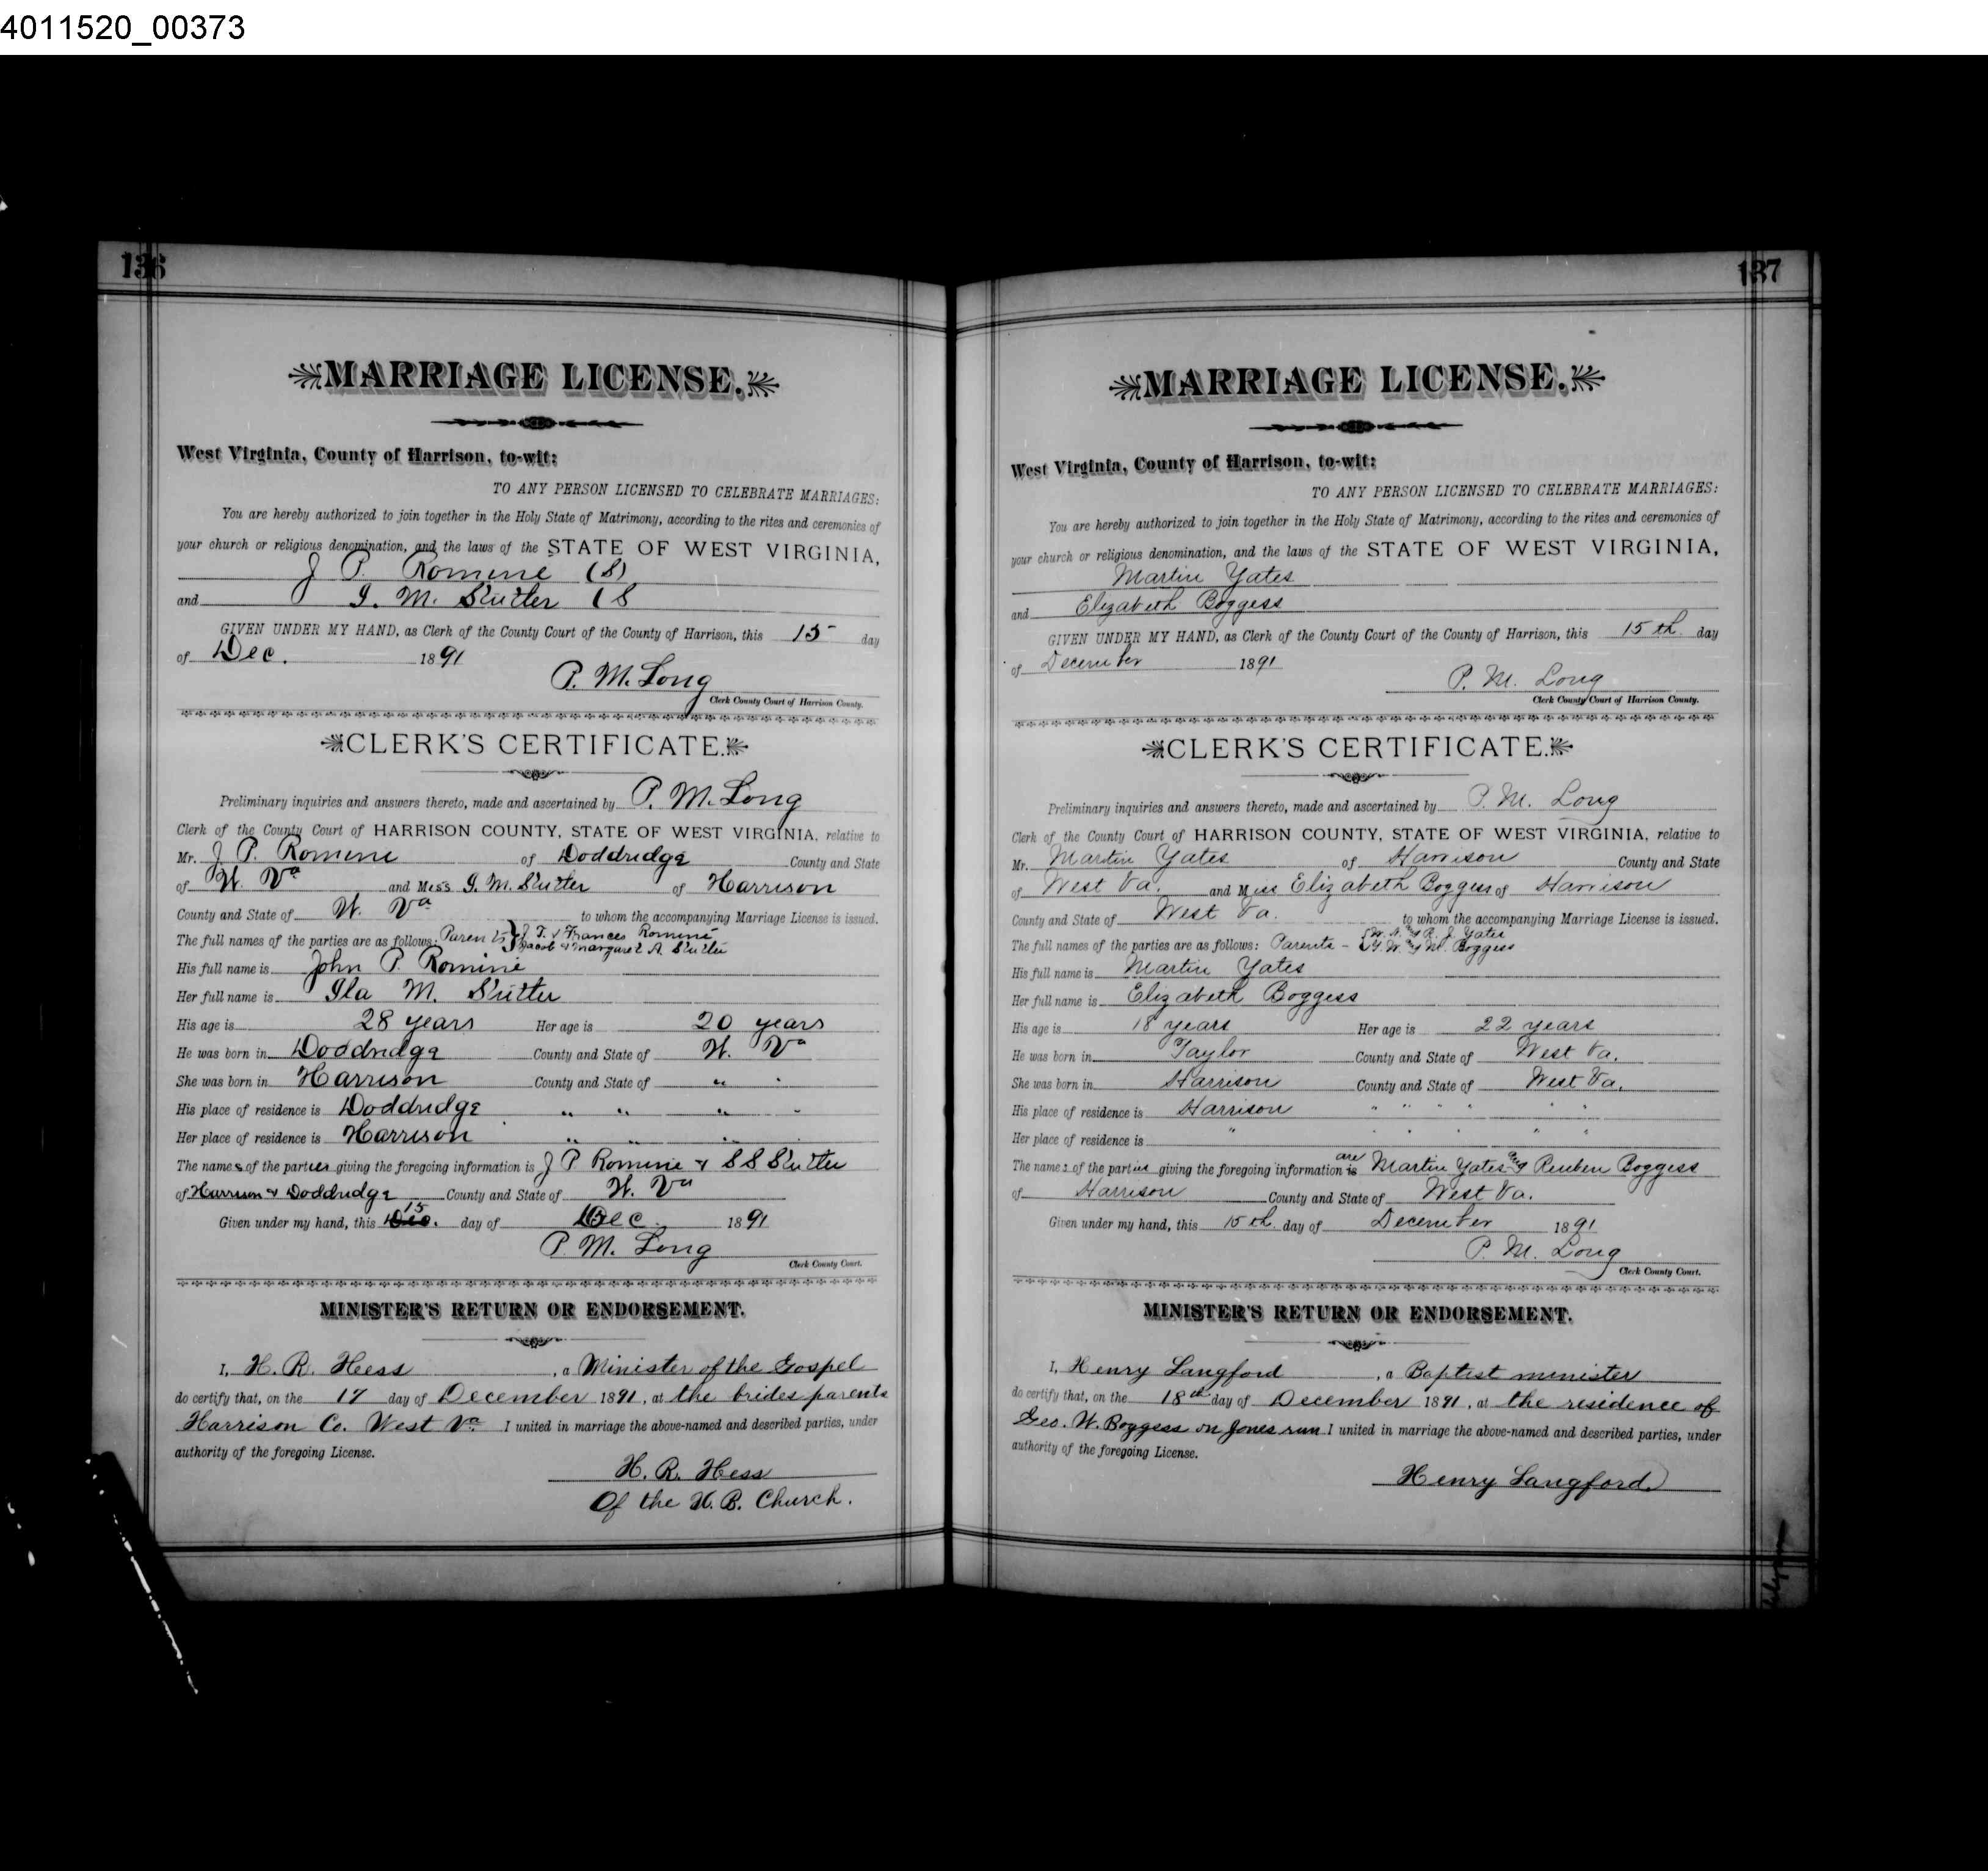 4011520_00373
136
MARRIAGE LICENSE.
West Virginia, County of Harrison, to-wit:
TO ANY PERSON LICENSED TO CELEBRATE MARRIAGES:
You are hereby authorized to join together in the Holy State of Matrimony, according to the rites and ceremonies of
your church or religious denomination, and the laws of the STATE OF WEST VIRGINIA,
J P Romine (S)
and I. M. Stutler (S
GIVEN UNDER MY HAND, as Clerk of the County Court of the County of Harrison, this 15 day
of Dec. 1891
P. M. Long
Clerk County Court of Harrison County.
CLERK'S CERTIFICATE.
Preliminary inquiries and answers thereto, made and ascertained by P. M. Long
Clerk of the County Court of HARRISON COUNTY, STATE OF WEST VIRGINIA, relative to
Mr. J P. Romine of Doddridge County and State
of W. Va and Miss I. M. Stutler of Harrison
County and State of W. Va to whom the accompanying Marriage License is issued.
The full names of the parties are as follows: Parents } J. T. & Frances Romine
Jacob & Margaret A. Stutler
His full name is John P. Romine
Her full name is Ila M. Stutler
His age is 28 years Her age is 20 years
He was born in Doddridge County and State of W. Va
She was born in Harrison County and State of " "
His place of residence is Doddridge " " " "
Her place of residence is Harrison " " " "
The names of the parties giving the foregoing information is J P Romine & S S Stutler
of Harrison & Doddridge County and State of W. Va
Given under my hand, this 15 day of Dec 1891
P. M. Long
Clerk County Court.
MINISTER'S RETURN OR ENDORSEMENT.
I, H. R. Hess, a Minister of the Gospel
do certify that, on the 17 day of December 1891, at the brides parents
Harrison Co. West Va I united in marriage the above-named and described parties, under
authority of the foregoing License.
H. R. Hess
Of the U. B. Church.
137
MARRIAGE LICENSE.
West Virginia, County of Harrison, to-wit:
TO ANY PERSON LICENSED TO CELEBRATE MARRIAGES:
You are hereby authorized to join together in the Holy State of Matrimony, according to the rites and ceremonies of
your church or religious denomination, and the laws of the STATE OF WEST VIRGINIA,
Martin Yates
and Elizabeth Boggess
GIVEN UNDER MY HAND, as Clerk of the County Court of the County of Harrison, this 15th day
of December 1891
P. M. Long
Clerk County Court of Harrison County.
CLERK'S CERTIFICATE.
Preliminary inquiries and answers thereto, made and ascertained by P. M. Long
Clerk of the County Court of HARRISON COUNTY, STATE OF WEST VIRGINIA, relative to
Mr. Martin Yates of Harrison County and State
of West Va. and Miss Elizabeth Boggess of Harrison
County and State of West Va. to whom the accompanying Marriage License is issued.
The full names of the parties are as follows: Parents - { W. A. and R. J. Yates
G. W. and M. Boggess
His full name is Martin Yates
Her full name is Elizabeth Boggess
His age is 18 years Her age is 22 years
He was born in Taylor County and State of West Va.
She was born in Harrison County and State of West Va.
His place of residence is Harrison " " " " " "
Her place of residence is " " " " " "
The names of the parties giving the foregoing information are Martin Yates and Reuben Boggess
of Harrison County and State of West Va.
Given under my hand, this 15th day of December 1891
P. M. Long
Clerk County Court.
MINISTER'S RETURN OR ENDORSEMENT.
I, Henry Langford, a Baptist minister
do certify that, on the 18th day of December 1891, at the residence of
Geo. W. Boggess on Jones run I united in marriage the above-named and described parties, under
authority of the foregoing License.
Henry Langford